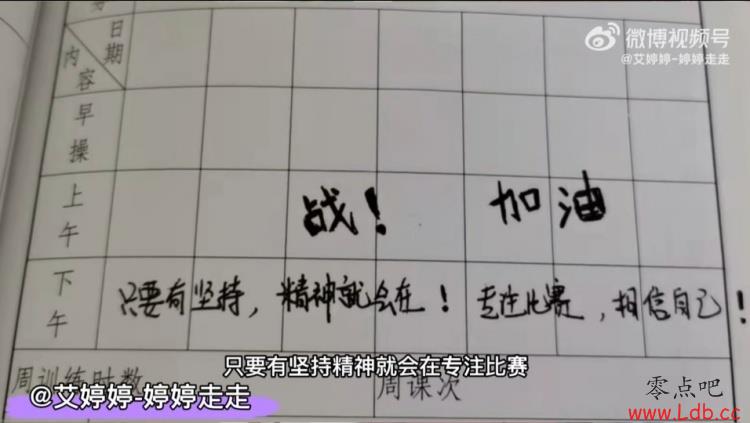 日期
内容
微博视频号
@艾婷婷-婷婷走走
早操
上午
战! 加油
下午
只要有坚持,精神就会在! 专注比赛,相信自己!
只要有坚持精神就会在专注比赛
周训练时数
周课次
@艾婷婷-婷婷走走
零点吧
www.Ldb.cc